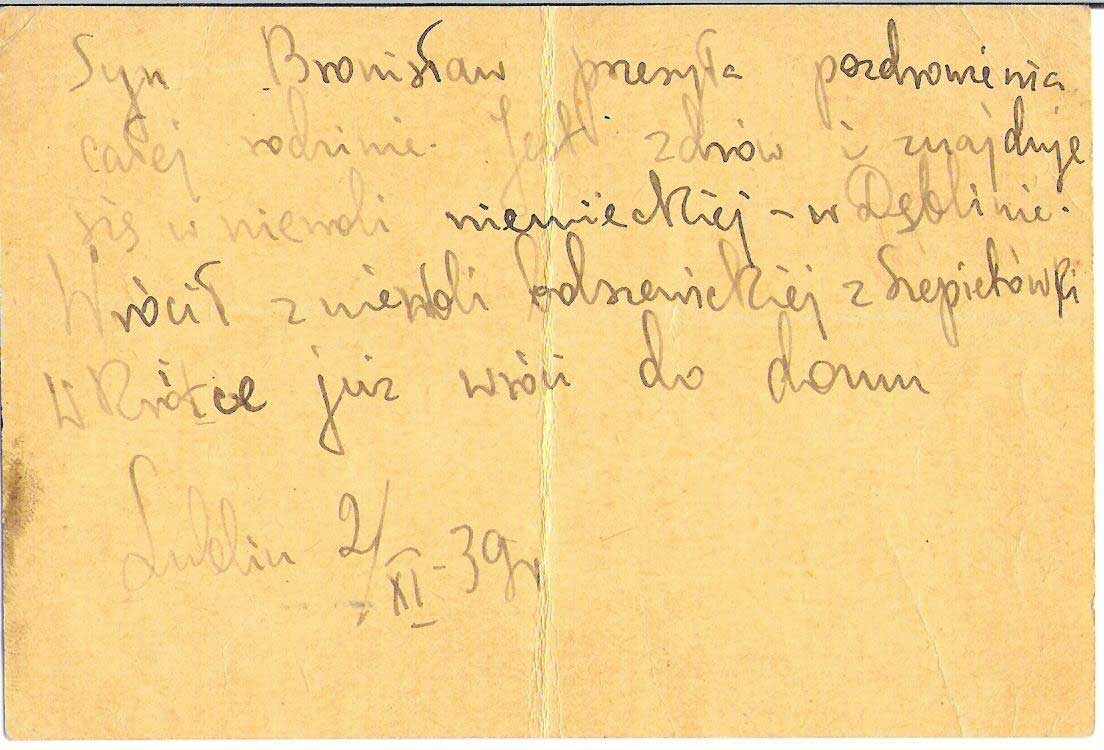 Syn Bronisław przesyła pozdrowienia
całej rodzinie. Jest zdrów i znajduje
się w niewoli niemieckiej – w Dęblinie.
Wrócił z niewoli bolszewickiej z Szepietówki
Wkrótce już wróci do domu
Lublin 2/XI-39r